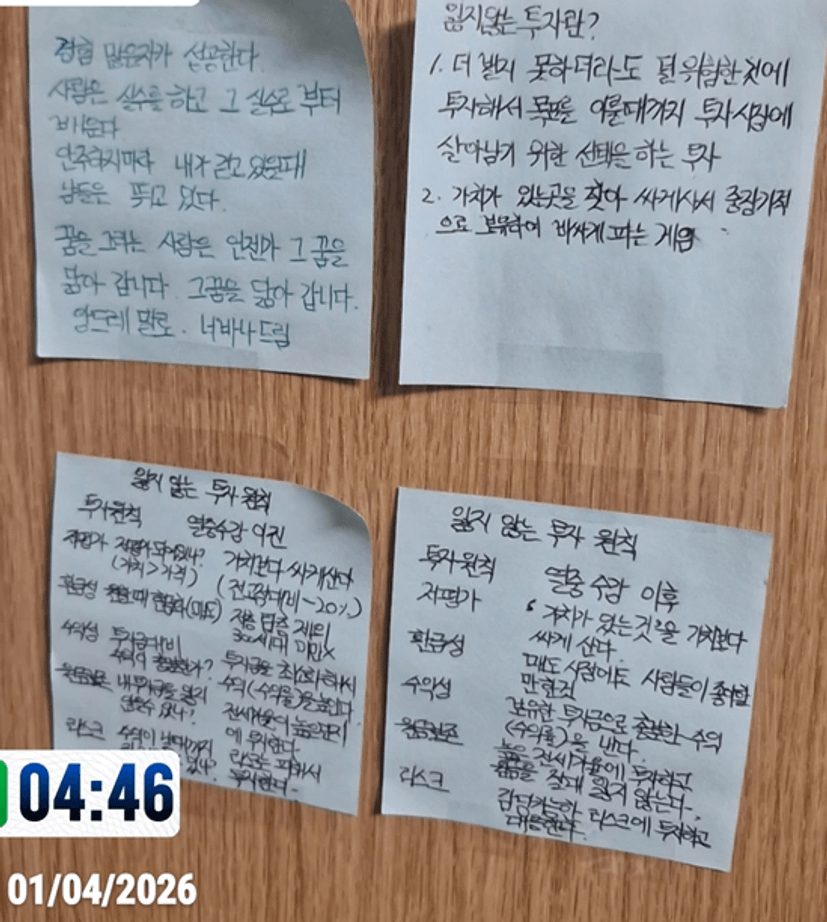 경험 많은자가 성공한다
사람은 실수를 하고 그 실수로 부터
배운다
안주하지마라 내가 걷고 있을때
남들은 뛰고 있다.
꿈을 그리는 사람은 언젠가 그 꿈을
닮아 갑니다. 그꿈을 닮아 갑니다.
앙드레 말로. 너바나드림
잃지않는 투자란?
1. 더 벌지 못하더라도 덜 위험한 것에
투자해서 목표를 이룰때까지 투자시장에
살아남기 위한 선택을 하는 투자
2. 가치가 있는곳을 찾아 싸게사서 중장기적
으로 보유하여 비싸게 파는 게임
잃지 않는 투자 원칙
투자원칙 열중수강 이전
저평가 저평가 되어있나? 가치보다 싸게산다
(가치>가격) (전고점대비-20%)
환금성 원할때 현금화(매도) 저층 탑층 제외
300세대 미만x
수익성 투자금대비 투자금을 최소화하서
수익이 충분한가? 수익(수익률)을
원금보존 내투자금을 잃지 전세가율이 높은
않을수 있나? 에 투자한다
리스크 리스크는 피해서
투자한다.
잃지 않는 투자 원칙
투자원칙 열중 수강 이후
저평가 "가치가 있는것"을 가치보다
싸게 산다.
환금성 매도 시점에도 사람들이 좋아할
만한것
수익성 보유한 투자금으로 충분한 수익
(수익률)을 낸다.
원금보존 높은 전세가율에 투자하고
절대 잃지 않는다.
리스크 감당가능한 리스크에 투자하고
대응한다.
04:46
01/04/2026